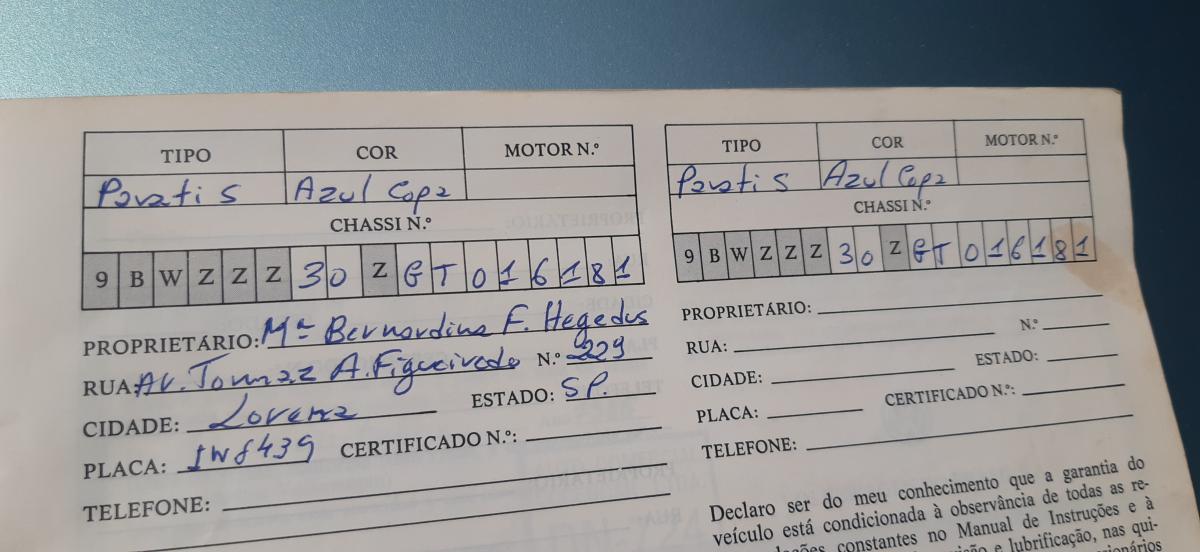 TIPO COR MOTOR N.º
Parati S Azul Copa
CHASSI N.º
9 B W Z Z Z 30 Z GT 016181
PROPRIETÁRIO: Mª Bernardina F. Hegedus
RUA: AV. Tomaz A. Figueiredo N.º 229
CIDADE: Lorena ESTADO: SP.
PLACA: IW8439 CERTIFICADO N.º:
TELEFONE:
TIPO COR MOTOR N.º
Parati S Azul Copa
CHASSI N.º
9 B W Z Z Z 30 Z GT 016181
PROPRIETÁRIO:
RUA: N.º
CIDADE: ESTADO:
PLACA: CERTIFICADO N.º:
TELEFONE:
Declaro ser do meu conhecimento que a garantia do
veículo está condicionada à observância de todas as re-
constantes no Manual de Instruções e à
e lubrificação, nas qui-